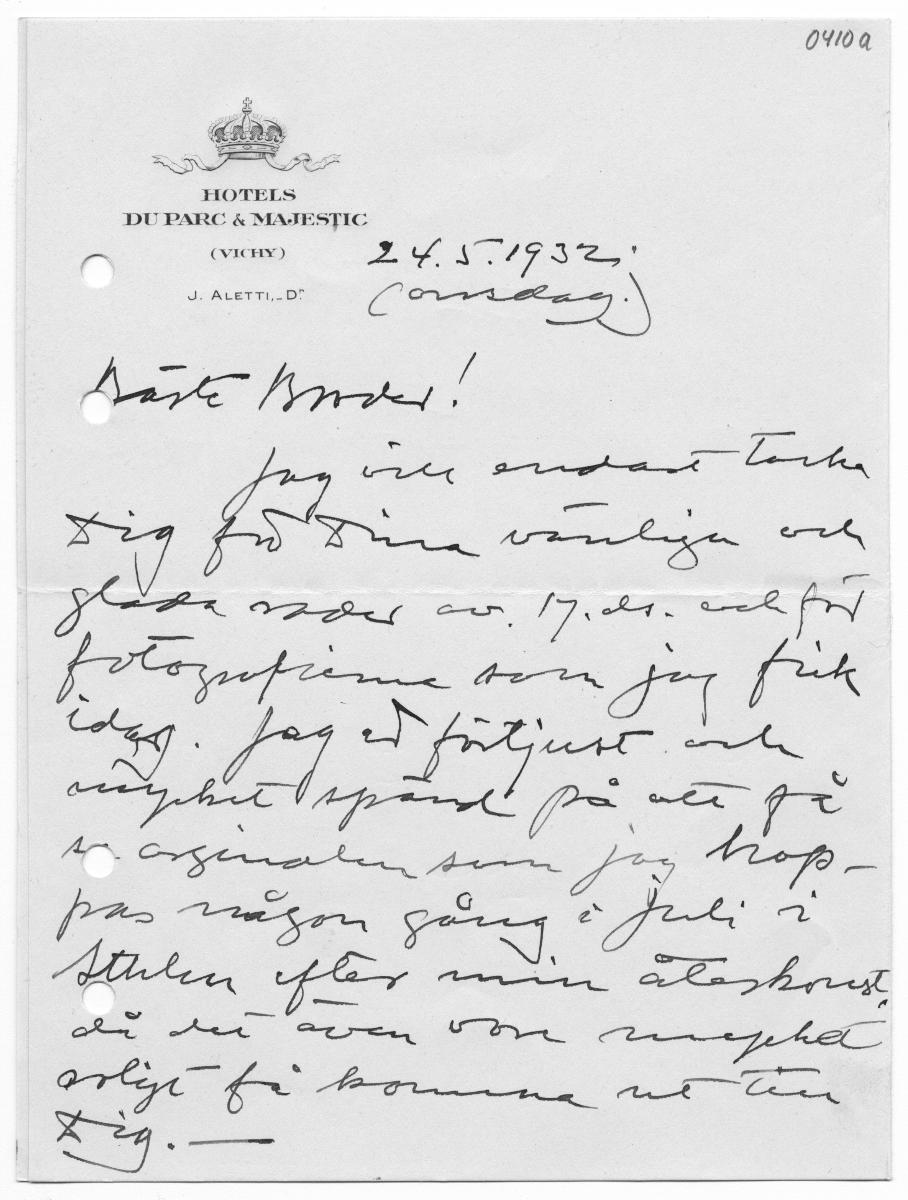 0410a
HOTELS
DU PARC & MAJESTIC
(VICHY)
J. ALETTI, _ Dr
24.5.1932;
(onsdag.)
Bäste Broder!
Jag vill endast tacka
Dig för Dina vänliga och
glada rader av. 17. ds. och för
fotografierna som jag fick
idag. Jag är förtjust och
mycket spänd på att få
se orginalen som jag hop-
pas någon gång i juli i
Sthlm efter min återkomst,
då det även vore mycket
roligt få komma ut till
Dig. —